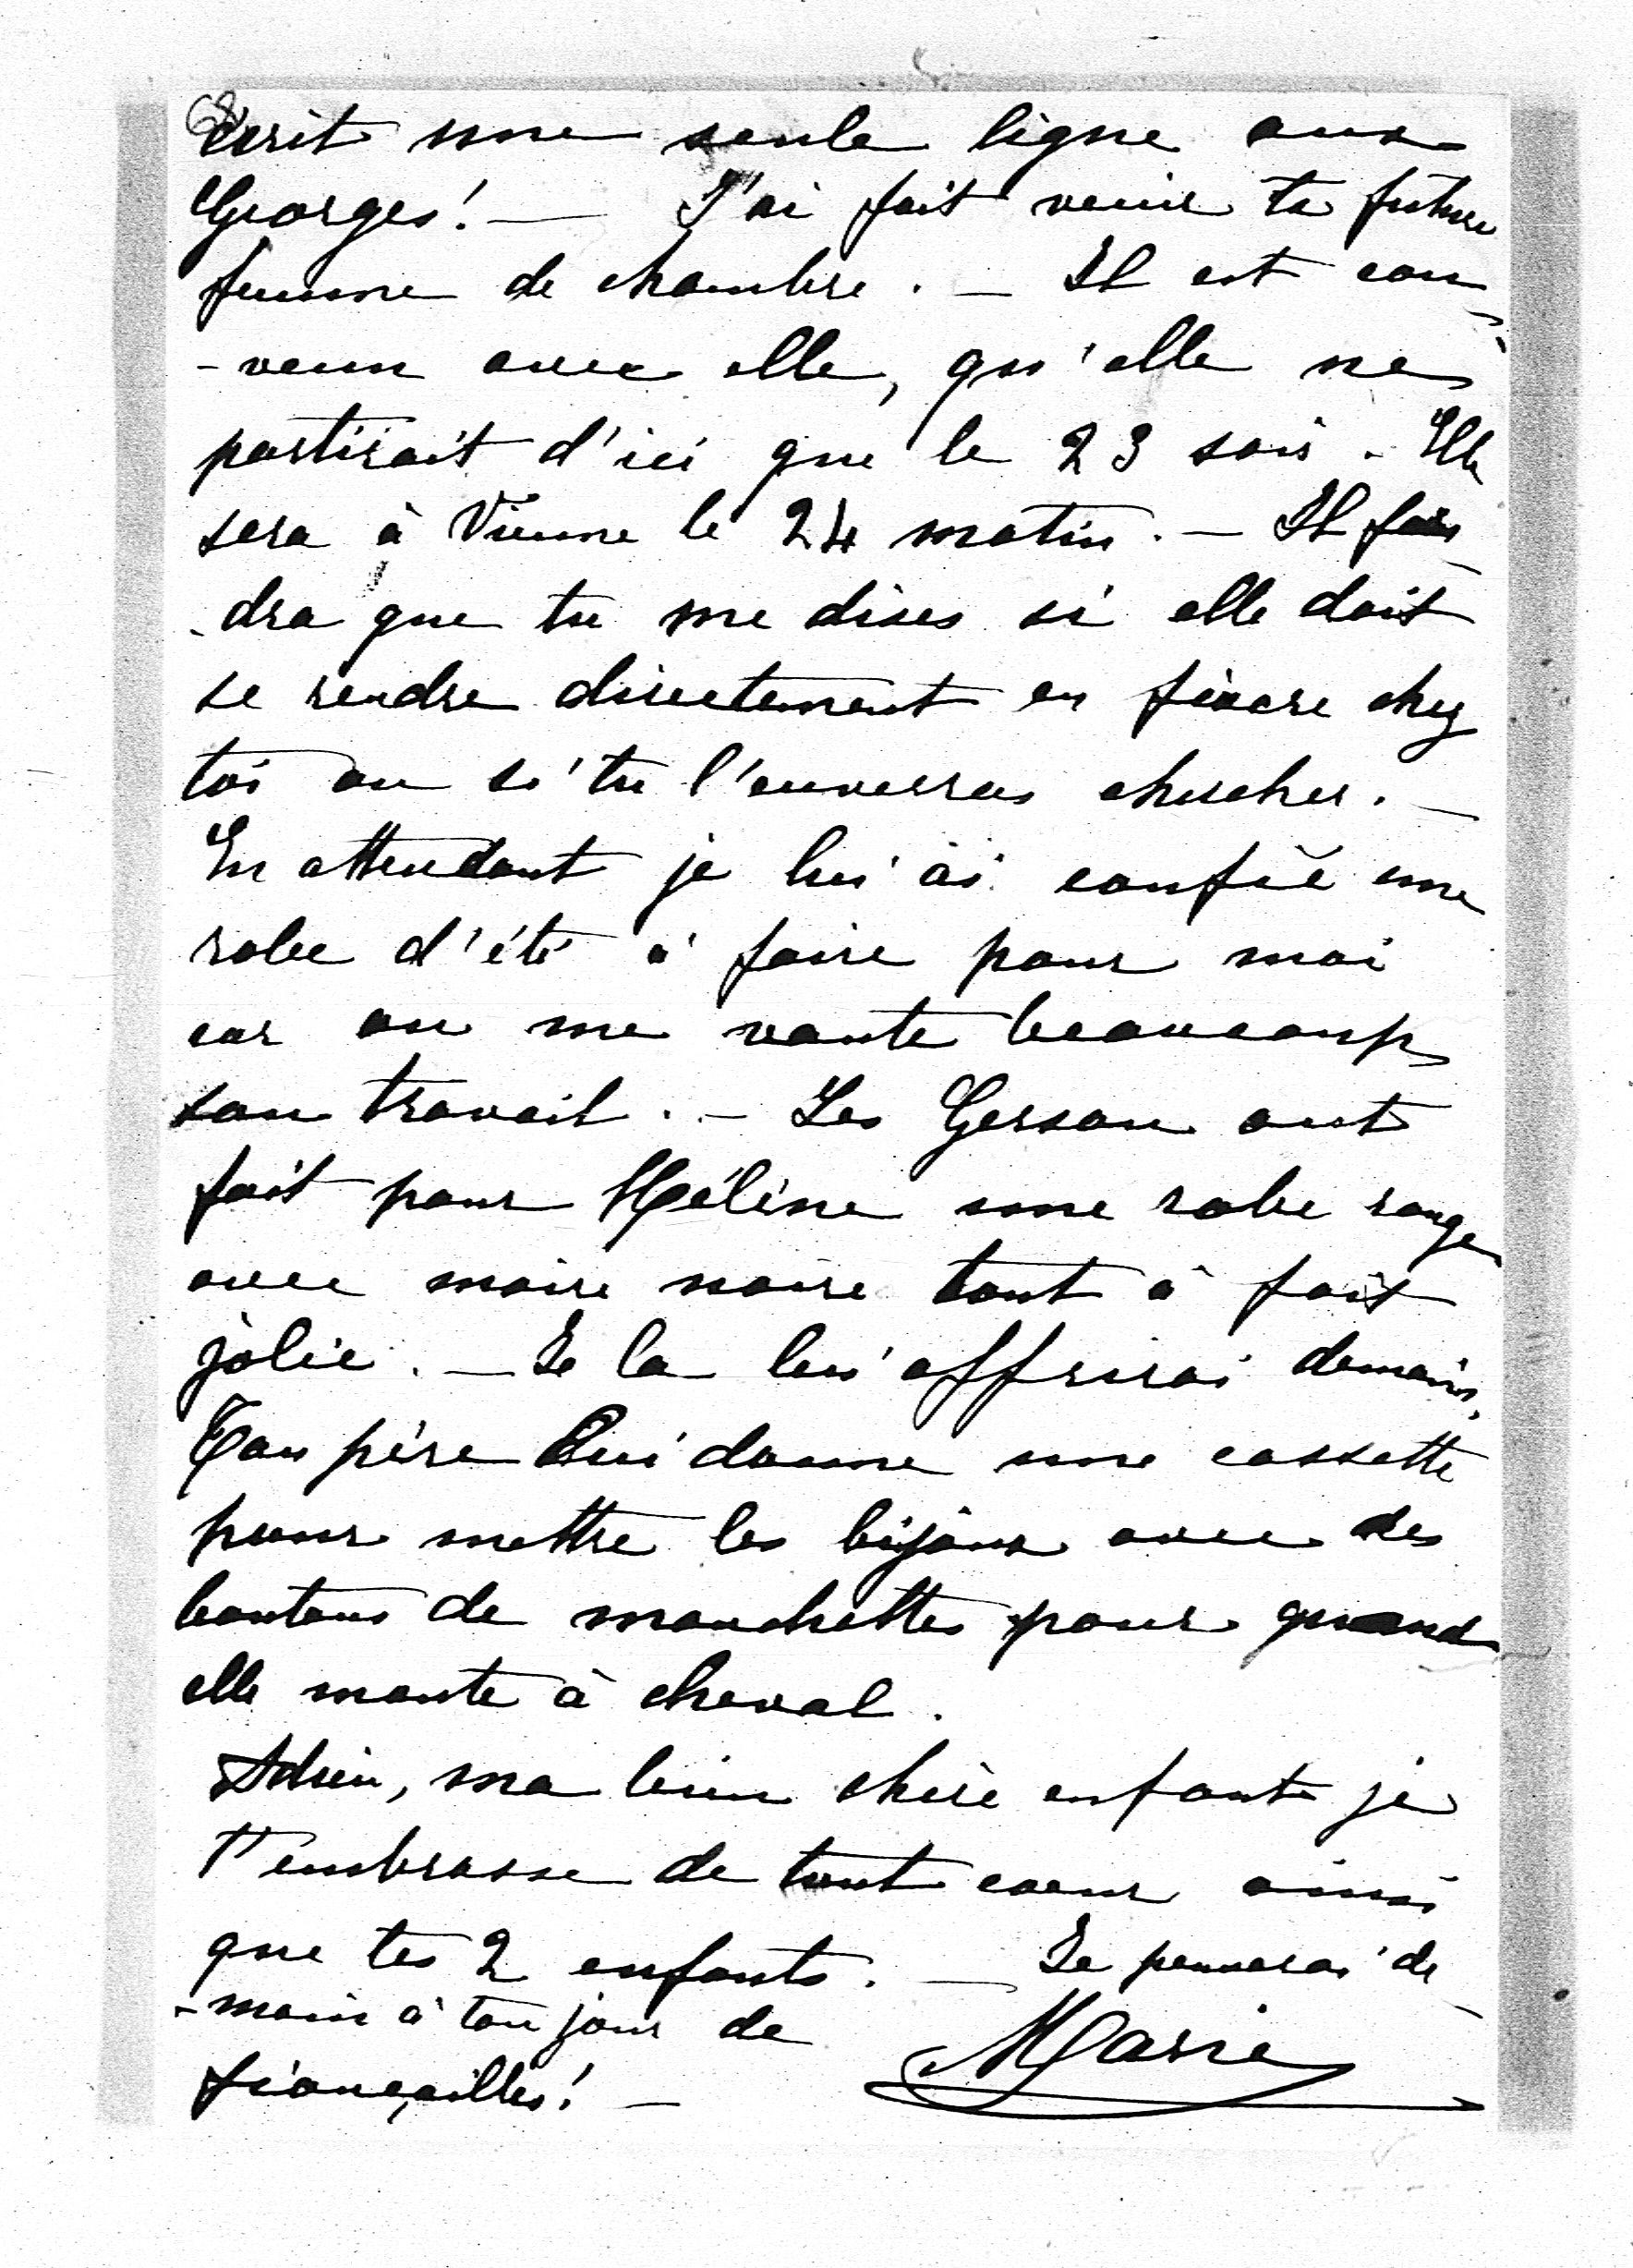 écrit une seule ligne aux
Georges! — J'ai fait venir ta future
femme de chambre. — Il est con-
-venu avec elle, qu'elle ne
partirait d'ici que le 23 soir. Elle
sera à Vienne le 24 matin. — Il fau-
-dra que tu me dises si elle doit
se rendre directement en fiacre chez
toi ou si tu l'enverras chercher. —
En attendant je lui ai confié une
robe d'été à faire pour moi
car on me vante beaucoup
son travail. — Les Gerson ont
fait pour Hélène une robe rouge
avec moire noire tout à fait
jolie. — Je la lui offrirai demain.
Ton père lui donne une cassette
pour mettre les bijoux avec des
boutons de manchettes pour quand
elle monte à cheval.
Adieu, ma bien chère enfant je
t'embrasse de tout coeur ainsi
que tes 2 enfants. — Je penserai de-
-main à ton jour de
fiançailles! —
Marie